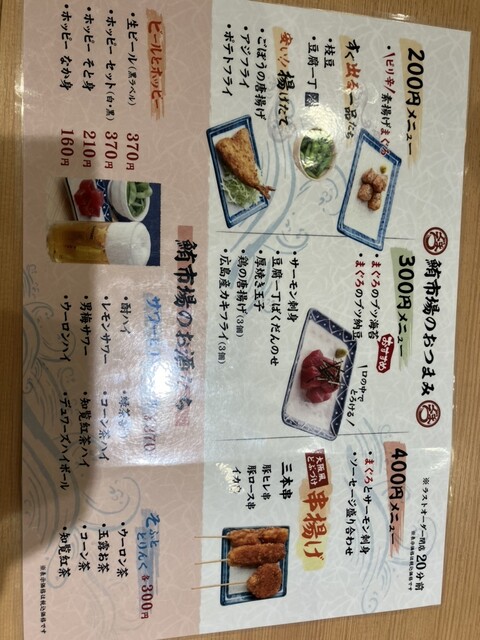 鮪市場のおつまみ
※ラストオーダー閉店20分前
※表示価格は税込価格です
200円メニュー
・(ピリ辛)素揚げまぐろ
すぐ出る一品たち
・枝豆
・豆腐一丁
安い!揚げたて
・ごぼうの唐揚げ
・アジフライ
・ポテトフライ
300円メニュー
・まぐろのブツ海苔
・まぐろのブツ納豆
おすすめ
口の中でとろける!
・サーモン刺身
・豆腐一丁ばくだんのせ
・厚焼き玉子
・鶏の唐揚げ(3個)
・広島産カキフライ(3個)
400円メニュー
・まぐろとサーモン刺身
・ソーセージ盛り合わせ
大阪風どぶづけ
串揚げ
三本串
豚ヒレ串
豚ロース串
イカ串
鮪市場のお酒たち
ビールとホッピー
・生ビール(黒ラベル) 370円
・ホッピーセット(白・黒) 370円
・ホッピー そと身 210円
・ホッピー なか身 160円
・酎ハイ
・レモンサワー
・男梅サワー
・ウーロンハイ
・緑茶ハイ
・コーン茶ハイ
・知覧紅茶ハイ
・デュワーズハイボール
そふとどりんく 各300円
・ウーロン茶
・玉露お茶
・コーン茶
・知覧紅茶
※表示価格は税込価格です